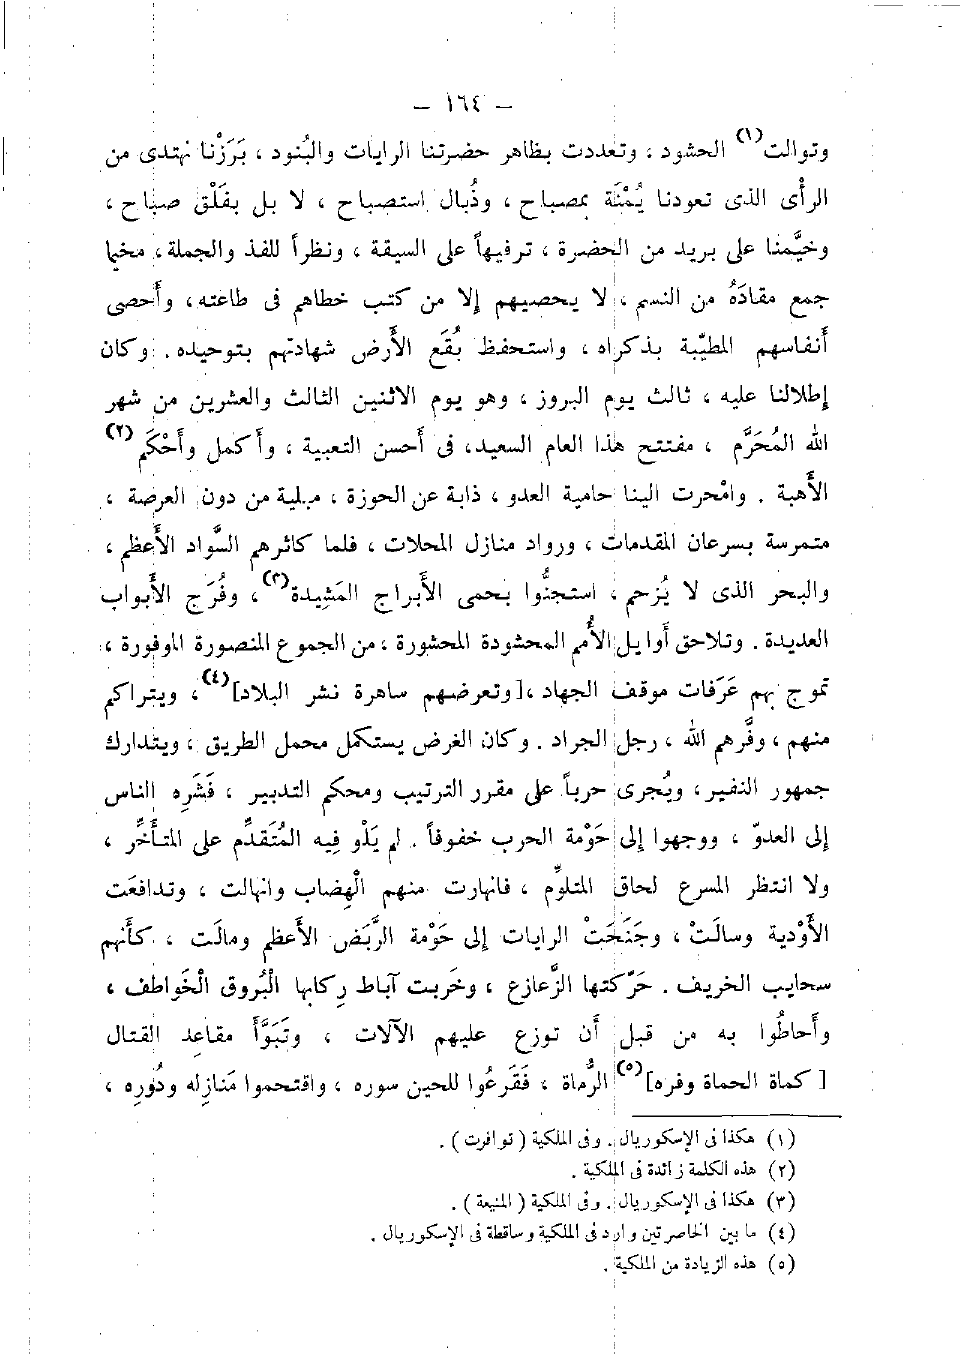 — ١٦٤ —
وتوالت(١) الحشود ، وتعددت بظاهر حضرتنا الرايات والبُنود ، بَرَزْنا نهتدى من
الرأى الذى تعودنا يُمْنَة بمصباح ، وذُبال استصباح ، لا بل بفَلْق صباح ،
وخيَّمنا على بريد من الحضرة ، ترفيهاً على السيقة ، ونظراً للفذ والجملة ، مخيا
جمع مقادَهُ من النسم ، لا يحصيهم إلا من كتب خطاهم فى طاعته ، وأحصى
أنفاسهم المطيّبة بذكراه ، واستحفظ بُقَع الأرض شهادتهم بتوحيده . وكان
إطلالنا عليه ، ثالث يوم البروز ، وهو يوم الاثنين الثالث والعشرين من شهر
الله المُحَرَّم ، مفتتح هذا العام السعيد ، فى أحسن التعبية ، وأكمل وأحْكَم(٢)
الأهبة . وامْحرت الينا حامية العدو ، ذابة عن الحوزة ، مبلية من دون العرصة ،
متمرسة بسرعان المقدمات ، ورواد منازل المحلات ، فلما كاثرهم السَّواد الأعظم ،
والبحر الذى لا يُزحم ، استجنُّوا بحمى الأبراج المَشِيدة(٣) ، وفُرَج الأبواب
العديدة . وتلاحق أوايل الأُمم المحشودة المحشورة ، من الجموع المنصورة الموفورة ،
تموج بهم عَرَفات موقف الجهاد ، [وتعرضهم ساهرة نشر البلاد](٤) ، ويتراكم
منهم ، وفَّرهم الله ، رجل الجراد . وكان الغرض يستكمل محمل الطريق ، ويتدارك
جمهور النفير ، ويُجرى حرباً على مقرر الترتيب ومحكم التدبير ، فَشَرِه الناس
إلى العدوّ ، ووجهوا إلى حَوْمة الحرب خفوفاً . لم يَلْو فِيه المُتَقدِّم على المتأخِّر ،
ولا انتظر المسرع لحاق المتلوِّم ، فانهارت منهم الْهِضاب وانهالت ، وتدافعَت
الأوْدية وسالَتْ ، وجَنَحَتْ الرايات إلى حَوْمة الرَّبَض الأعظم ومالَت ، كأنهم
سحايب الخريف . حَرَّكتها الزَّعازع ، وخَربت آباط رِكابها الْبُروق الْخَواطف ،
وأحاطُوا به من قبل أن توزع عليهم الآلات ، وتَبَوَّأ مقاعِد القتال
[ كماة الحماة وفره](٥) الرُّماة ، فَقَرعُوا للحين سوره ، واقتحموا مَنازِله ودُورِه ،
(١) هكذا فى الإسكوريال . وفى الملكية ( توافرت ) .
(٢) هذه الكلمة زائدة فى الملكية .
(٣) هكذا فى الإسكوريال . وفى الملكية ( المنيعة ) .
(٤) ما بين الحاصرتين وارد فى الملكية وساقطة فى الإسكوريال .
(٥) هذه الزيادة من الملكية .